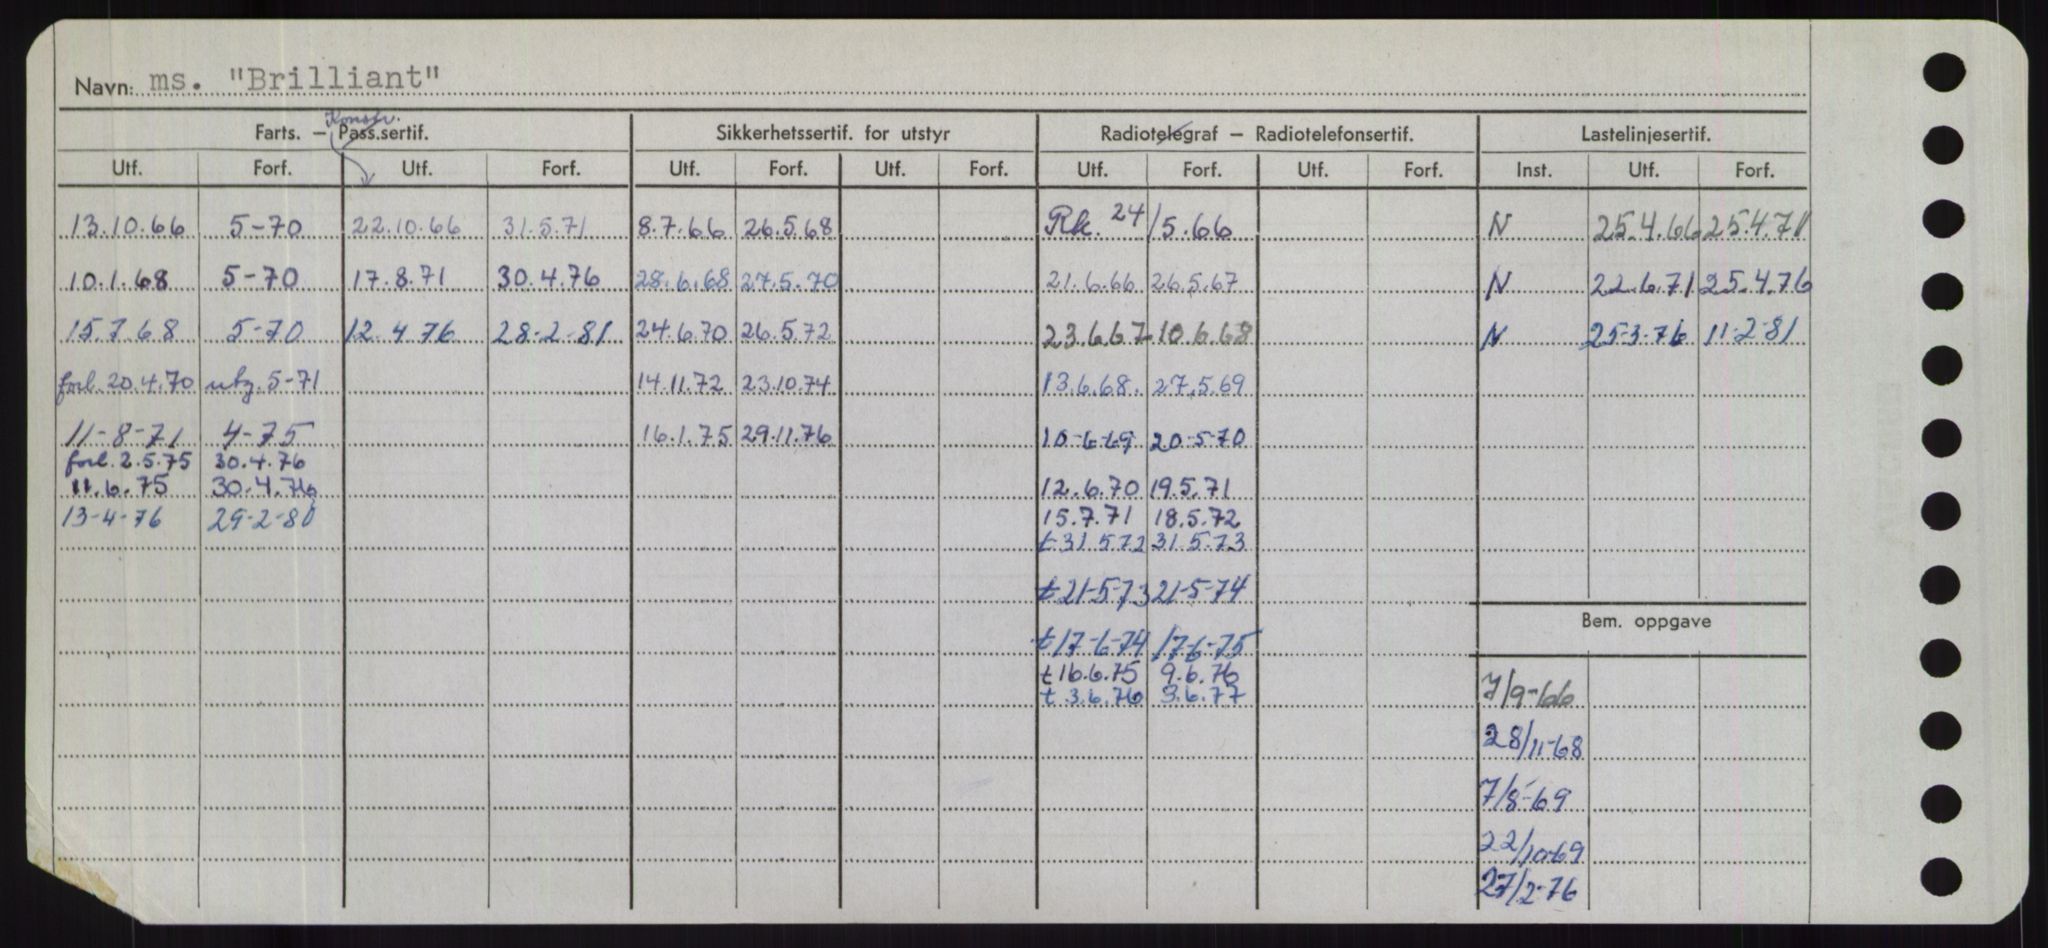 Navn: ms. "Brilliant"
Konstr.
Farts. – Pass.sertif. Sikkerhetssertif. for utstyr Radiotelegraf – Radiotelefonsertif. Lastelinjesertif.
Utf. Forf. Utf. Forf. Utf. Forf. Utf. Forf. Utf. Forf. Utf. Forf. Inst. Utf. Forf.
13.10.66 5-70 22.10.66 31.5.71 8.7.66 26.5.68 Rk. 24/5.66 N 25.4.66 25.4.71
10.1.68 5-70 17.8.71 30.4.76 28.6.68 27.5.70 21.6.66 26.5.67 N 22.6.71 25.4.76
15.7.68 5-70 12.4.76 28-2-81 24.6.70 26.5.72 23.6.67 10.6.68 N 25-3-76 11-2-81
forl. 20.4.70 utg. 5-71 14.11.72 23.10.74 13.6.68. 27.5.69
11-8-71 4-75 16.1.75 29.11.76 10-6-69 20-5-70
forl. 2.5.75 30.4.76
11.6.75 30.4.76 12.6.70 19.5.71
13-4-76 29-2-80 15.7.71 18.5.72
t 31.5.72 31.5.73
t 21-5-73 21-5-74
Bem. oppgave
t 17-6-74 17-6-75
t 16.6.75 9.6.76
t 3.6.76 3.6.77 7/9-66
28/11-68
7/8-69
22/10-69
27/2-76